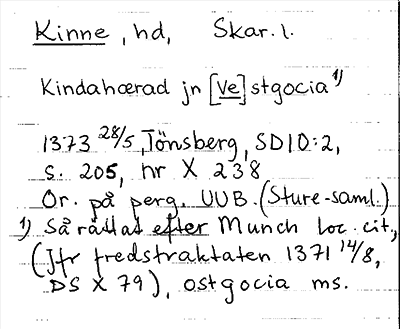 Kinne, hd, Skar. l.
Kindahærad jn [Ve]stgocia 1)
1373 28/5, Tönsberg, SD 10:2,
s. 205, nr X 238
Or. på perg. UUB. (Sture-saml.)
1) Så rättat efter Munch loc. cit.,
(Jfr fredstraktaten 1371 14/8,
DS X 79), ostgocia ms.